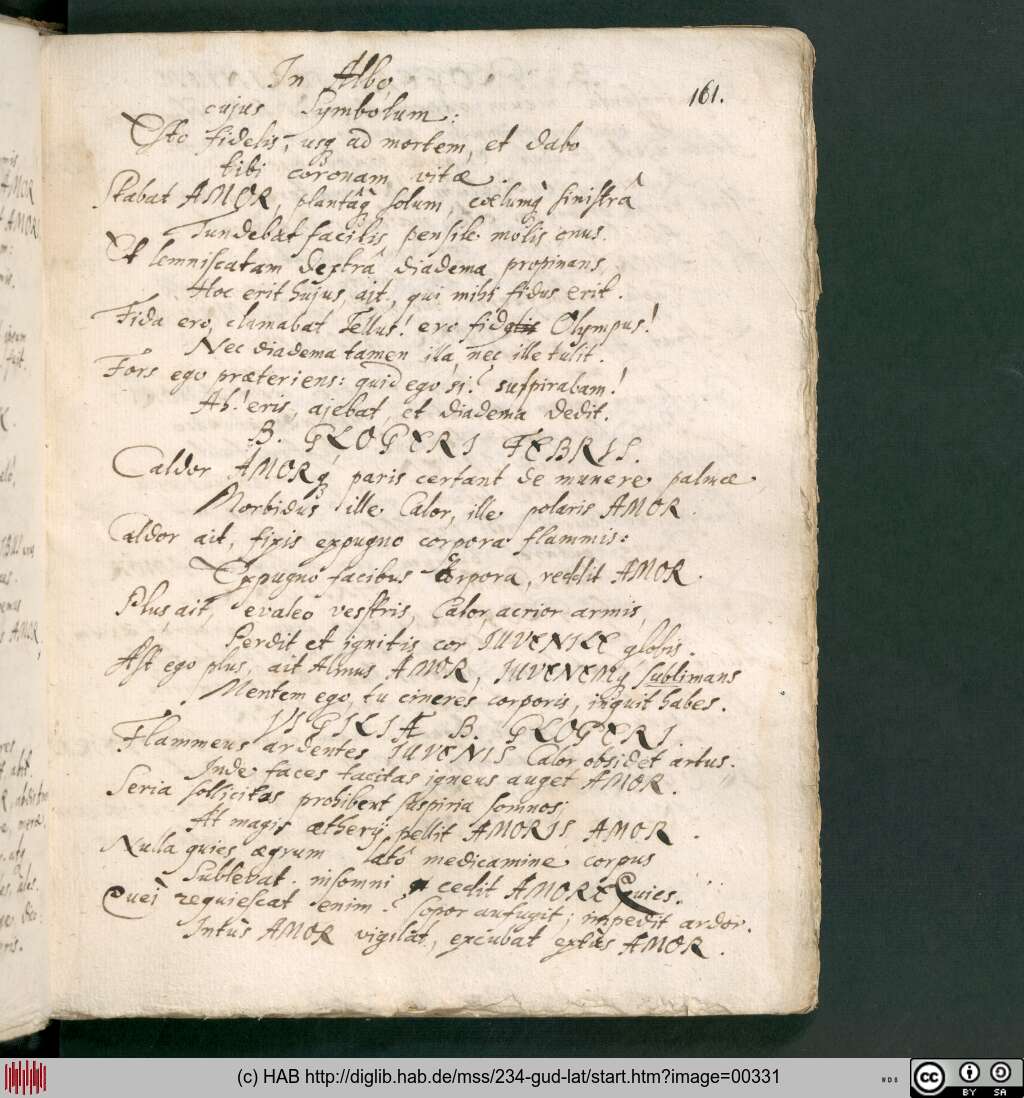 161.
In Albo,
cujus Symbolum:
Esto fidelis, usq ad mortem, et dabo
tibi coronam vitæ.
Stabat AMOR, plantâq solum, coelumq sinistrâ
Tundebat facilis, pensile molis onus.
Et lemniscatam dextrâ diadema propinans,
Hoc erit hujus, ait, qui mihi fidus erit.
Fida ero, clamabat Tellus! ero fidus Olympus!
Nec diadema tamen illa, nec ille tulit.
Fors ego præteriens: quid ego si? suspirabam!
Ah! eris, ajebat, et diadema dedit.
B. GLOGERI FEBRIS.
Caldor AMORq paris certant de munere palmæ,
Morbidus ille Calor, ille polaris AMOR.
Caldor ait, fixis expugno corpora flammis:
Expugno facibus Corpora, reddit AMOR.
Plus, ait, evaleo vestris, Calor, acrior armis,
Perdit et ignitis cor IUVENILE globis.
Ast ego plus, ait Almus AMOR, IUVENEMq sublimans
Mentem ego, tu cineres corporis, inquit habes.
VIGILIÆ B. GLOGERI.
Flammeus ardentes IUVENIS Calor obsidet artus.
Inde faces tacitas igneus auget AMOR.
Seria sollicitos prohibent suspiria somnos;
At magis ætherij pellit AMORIS AMOR.
Nulla quies ægrum lato medicamine corpus
Sublevat. insomni cedit AMORE Quies.
Quei requiescat enim? sopor aufugit; impedit ardor.
Intùs AMOR vigilat, excubat extùs AMOR.
(c) HAB http://diglib.hab.de/mss/234-gud-lat/start.htm?image=00331
cc BY SA